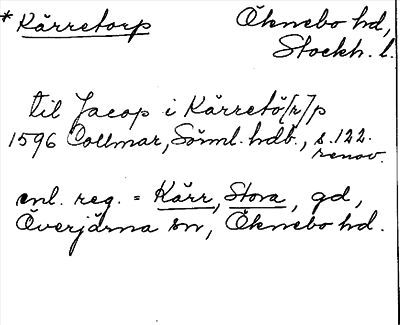 * Kärretorp Öknebo hd,
Stockh. l.
til Jacop i Kärretö[r]p
1596 Collmar, Söml. hdb., s. 122.
renov.
enl. reg. = Kärr, Stora, gd,
Överjärna sn, Öknebo hd.